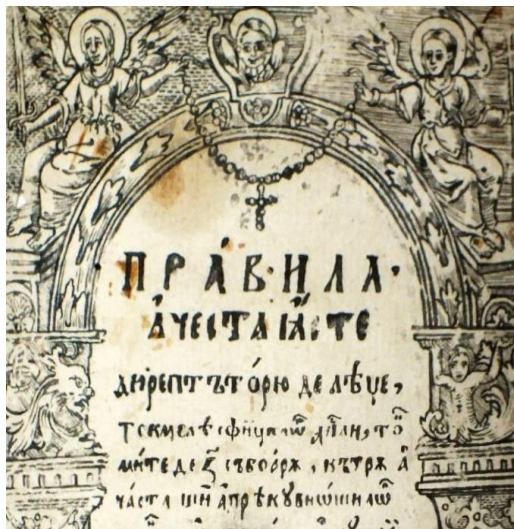 ·ПРА́В·ИЛА·
А҆ЧЕСТА ꙖСТЕ
дирептъто́рю де лѣџе,
Токмелѣ сфнцилѡⷬ а҆пⷭ҇ли, тоⷦ
мите де з҃ съборѫ, кътрѫ а҆
часта ши апрѣкꙋвиѡшилѡⷬ